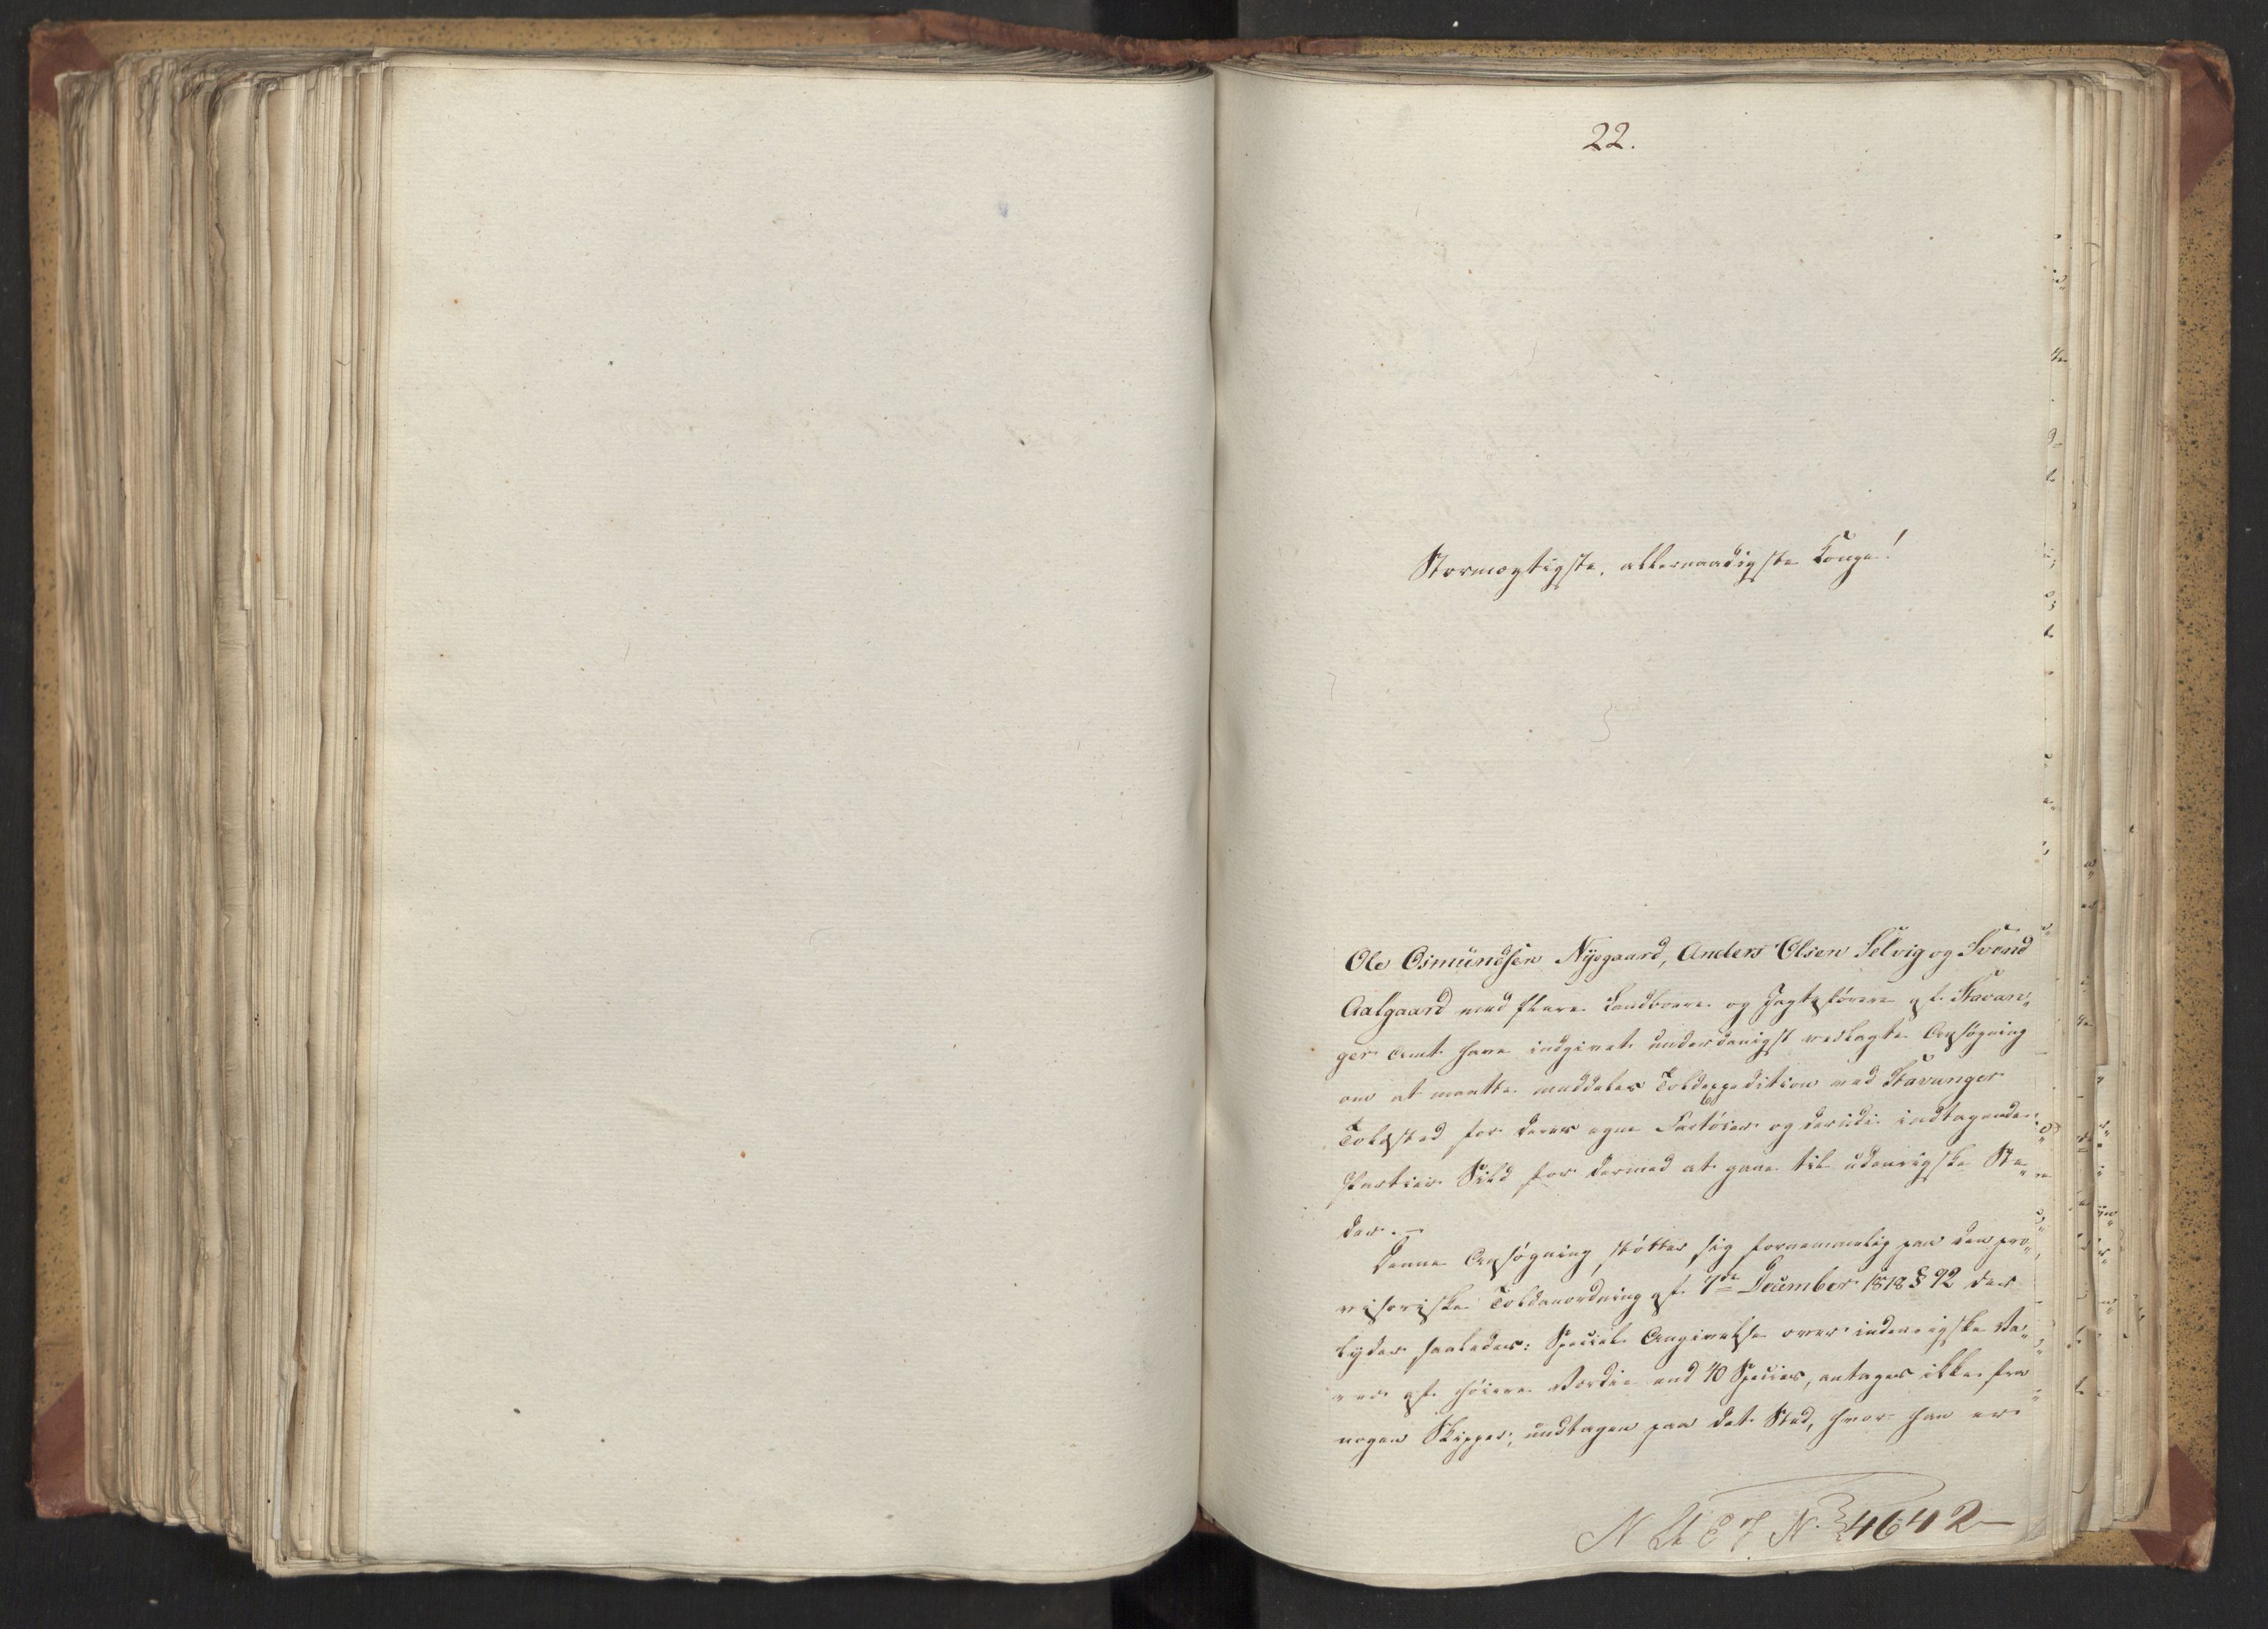 22.
Stormægtigste, allernaadigste Konge!
Ole Osmundsen Nygaard, Anders Olsen Selvig og Svend
Aalgaard med flere Landboere og Jagtsførere af Stavan„
ger Amt have indgivet underdanigst vedlagte Ansøgning
om at maatte meddeles Toldexpedition ved Stavanger
Toldsted for deres egne Fartøier og deriudi indtagende
Partier Sild for dermed at gaae til udenrigske Ste„
der. –
Denne Ansøgning støtter sig fornemmelig paa den pro„
visoriske Toldanordning af 7de December 1818 § 92 der
lyder saaledes: Special Angivelse over indenrigske Va„
rer af høiere Værdie end 40 Species, antages ikke fra
nogen Skipper, undtagen paa det Sted, hvor han er
N 4642